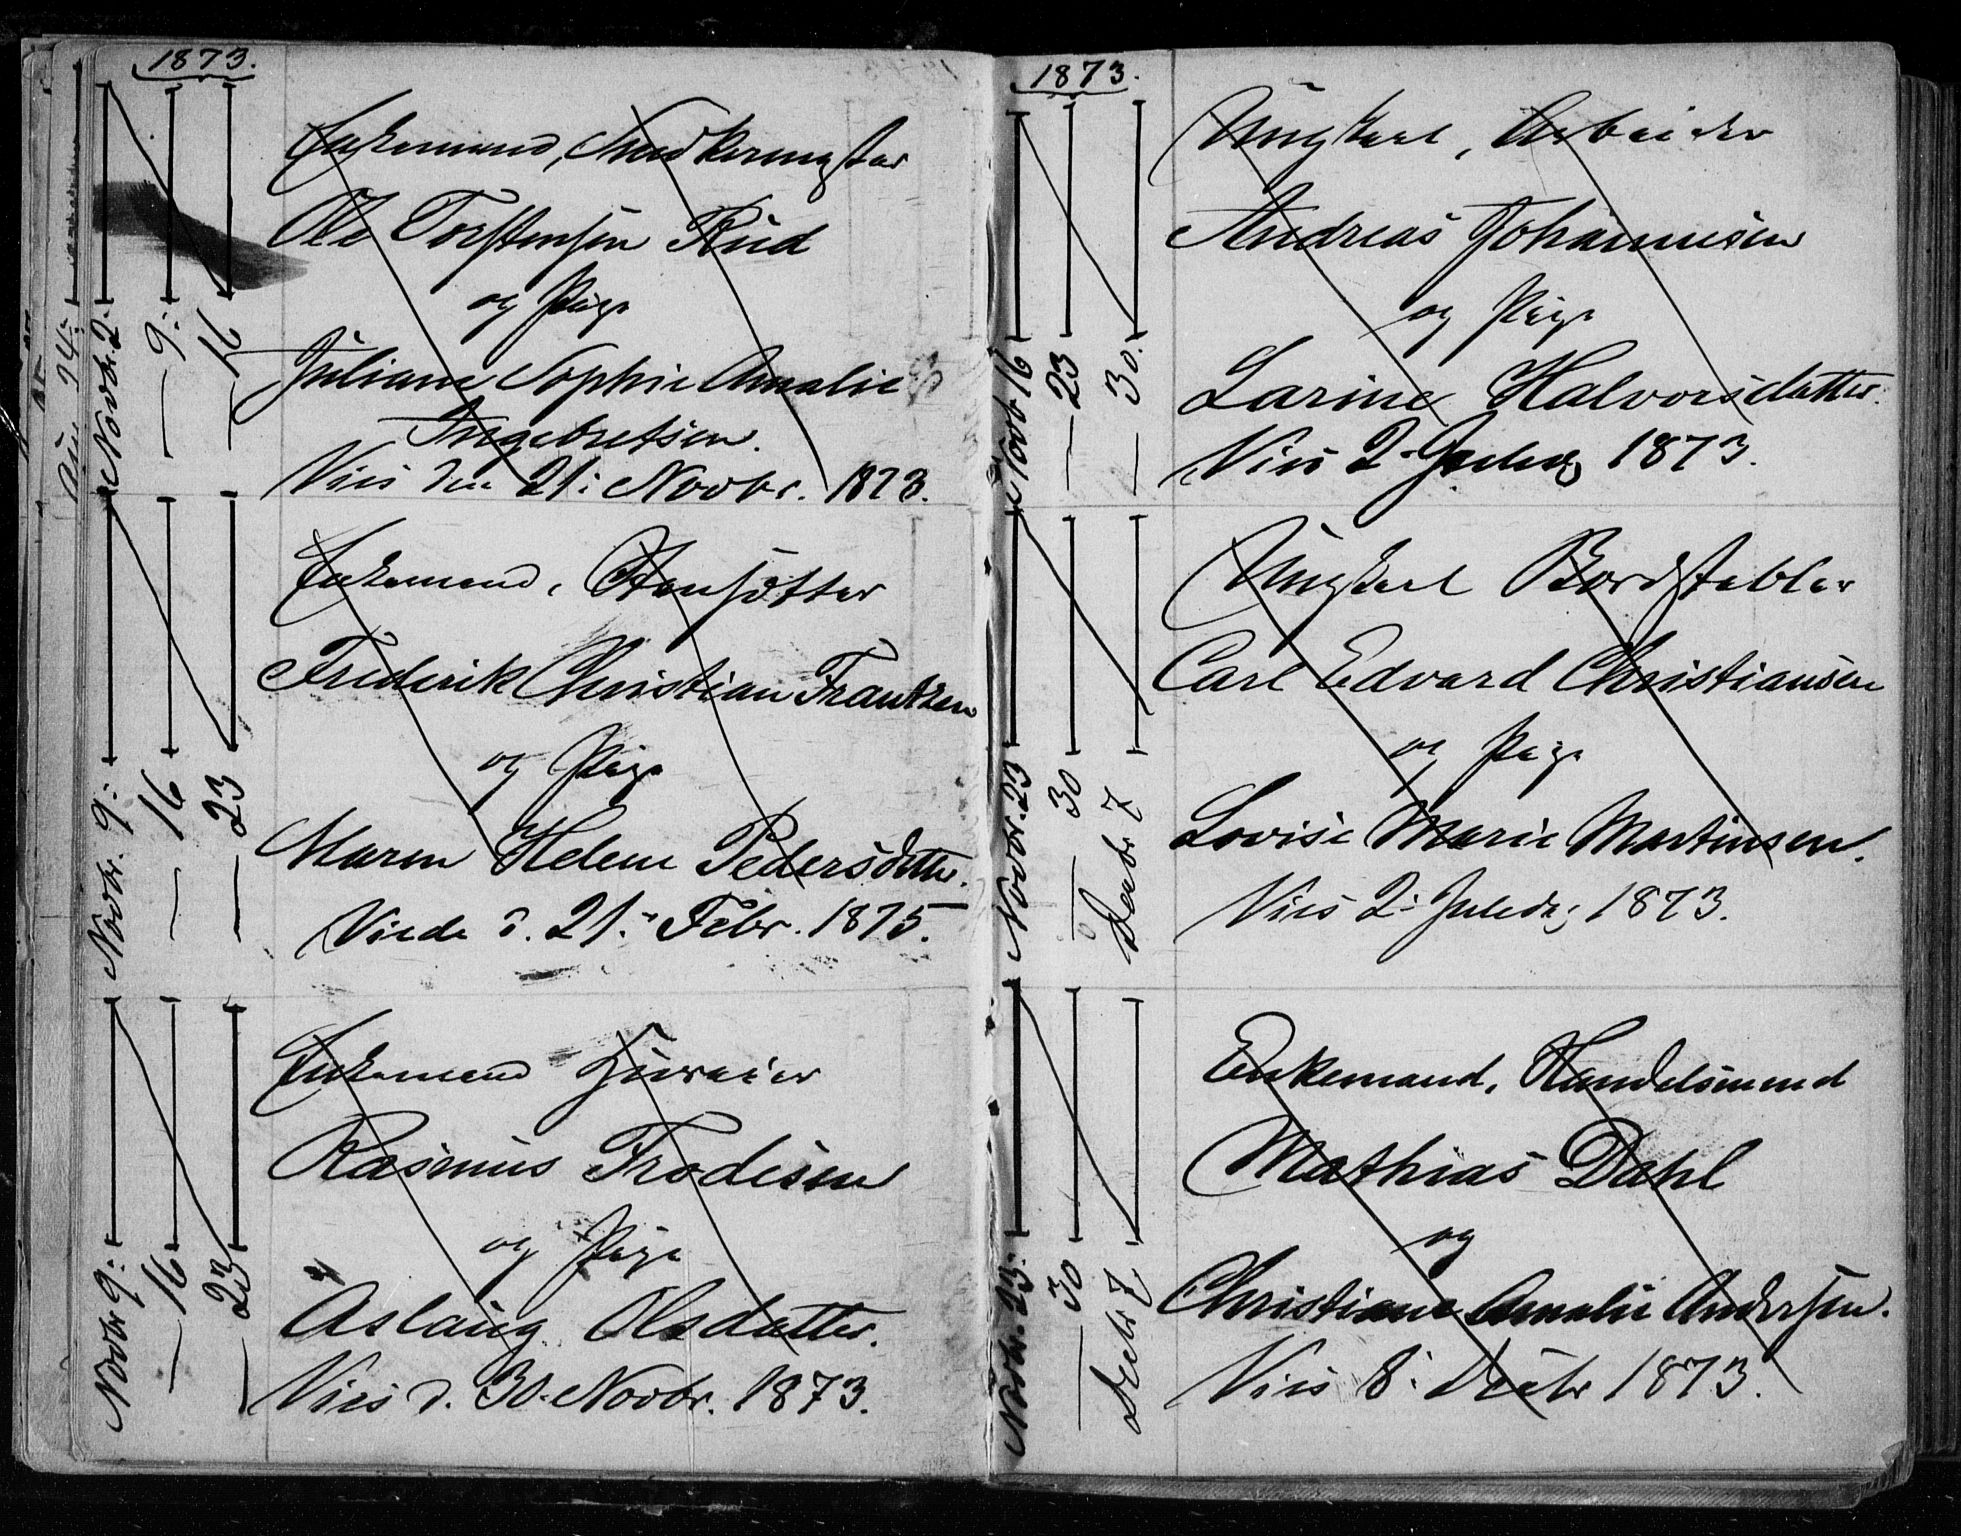 1873.
Novbr. 2:
9:
16
Enkemand, Snedkermester
Ole Torstensen Rud
og Pige
Juliane Sophie Amalie
Ingebretsen.
Vies den 21: Novbr. 1873.
Novbr. 9:
16
23
Enkemand,
Frederik Christian Frantzen
og Pige
Maren Helene Pedersdatter.
Viede d. 21: Febr. 1875.
Novbr 9:
16
23
Enkemand
Rasmus Frodesen
og Pige
Aslaug Olsdatter.
Vies d. 30. Novbr. 1873.
1873.
Novbr 16
23
30.
Ungkarl, Arbeider
Andreas Johannesen
og Pige
Larine Halvorsdatter.
Vies 2. Juledag 1873.
Novbr. 23
30
Decbr 7
Ungkarl Bordstabler
Carl Edvard Christiansen
og Pige
Lovise Marie Martinsen.
Vies 2: Juledag 1873.
Novbr. 23:
30
Decbr 7
Enkemand, Handelsmand
Mathias Dahl
og
Christiane Amalie Andersen.
Vies 8: Decbr 1873.